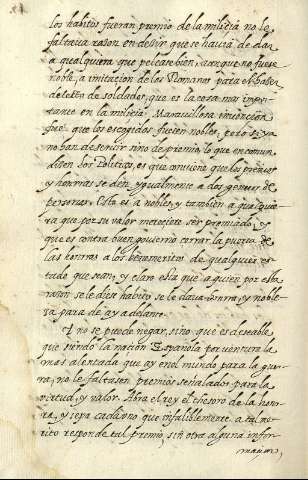 los habitos fueran premio de la milicia no le
faltava razon en decir que se havia de dar
a qualquiera que peleare bien, aunque no fuese
noble, a imitacion de los Romanos para
de soldados, que es la cosa mas impor-
tante en la milicia. Maravillosa invencion
fue que los escogidos fuesen nobles, pero si ya
no han de servir sino de premio lo que en comun
dicen los Politicos, es que conviene que los premios
y honrras se den ygualmente a dos generos de
personas. Esta es a nobles, y tambien a qualquie-
ra que por su valor mereciese ser premiado, y
que es contra buen govierno cerrar la puerta de
las honrras a los benemeritos de qualquier es-
tado que sean, y claro esta que a quien por esta
razon se le diese habito se le dava honrra, y noble-
za para de ay adelante.
I no se puede negar, sino que es deseable
que siendo la nacion Española por ventura la
mas alentada que ay en el mundo para la gue-
rra, no le faltasen premios señalados para la
virtud, y valor. Abra el rey el thesoro de la hon-
rra, y sepa cada uno que infaliblemente a tal me-
rito responde tal premio, sin otra alguna infor-
macion,